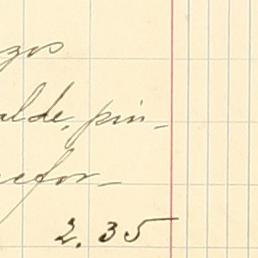 zos
alde, pin-
refor-
2.35